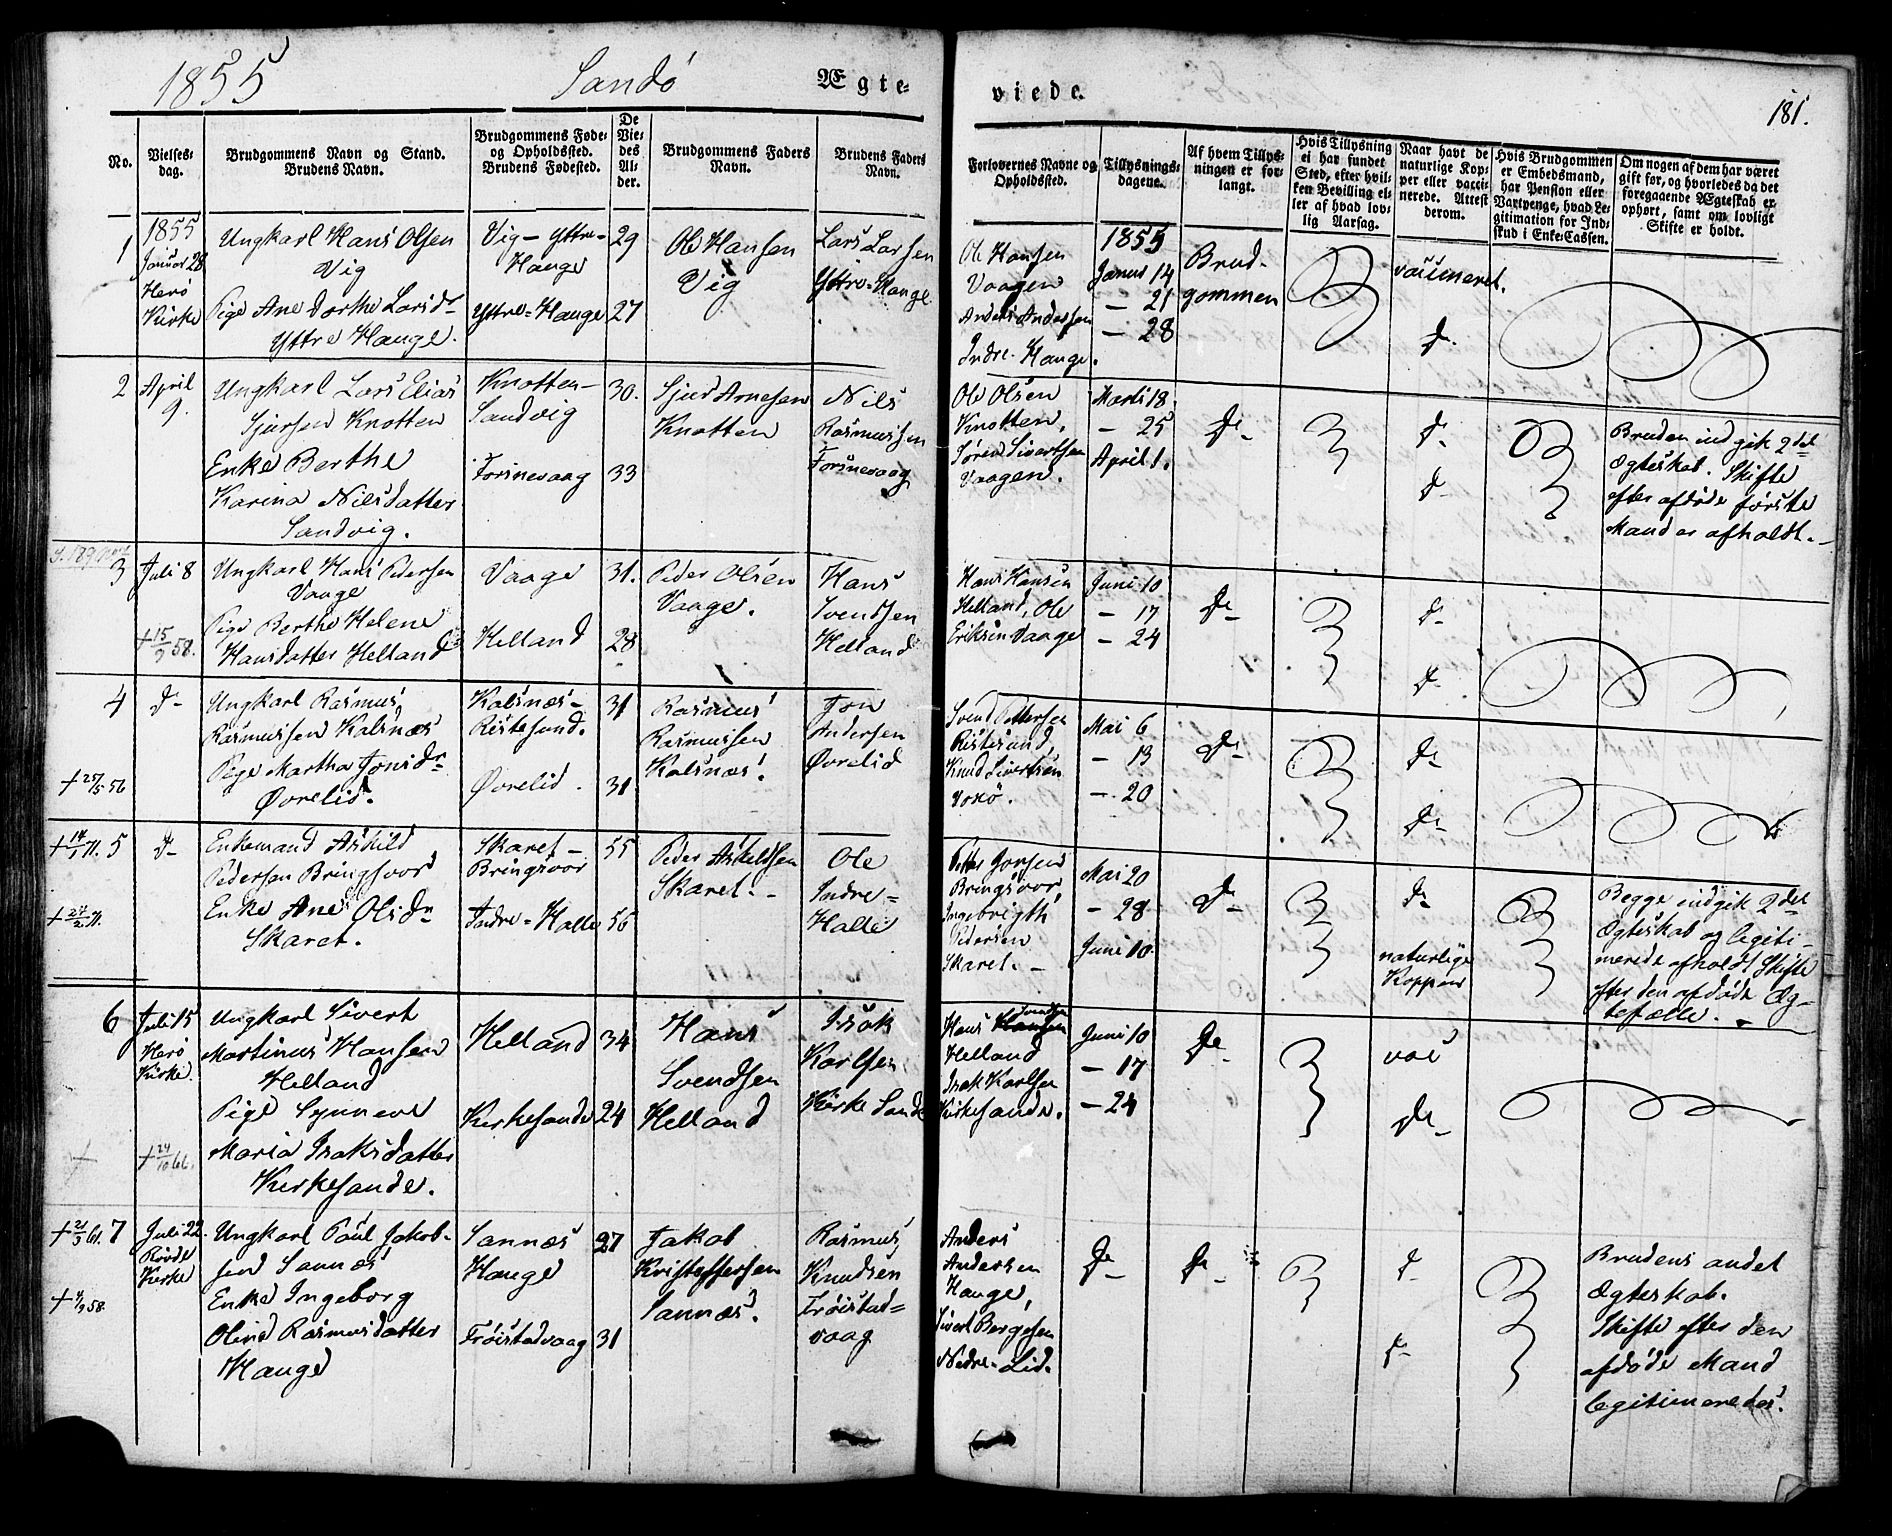 1855 Sandö Ægte= viede. 181.
No.
Vielses-
dag.
Brudgommens Navn og Stand.
Brudens Navn.
Brudgommens Føde-
og Opholdssted.
Brudens Fødested.
De
Vie-
des
Al-
der.
Brudgommens Faders
Navn.
Brudens Faders
Navn.
Forlovernes Navne og
Opholdssted.
Tillysnings-
dagene.
Af hvem Tillys-
ningen er for-
langt.
Hvis Tillysning
ei har fundet
Sted, efter hvil-
ken Bevilling el-
ler af hvad lov-
lig Aarsag.
Naar havt de
naturlige Kop-
per eller vacci-
nerede. Attest
derom.
Hvis Brudgommen
er Embedsmand,
har Pension eller
Vartpenge, hvad Le-
gitimation for Ind-
skud i Enke-Cassen.
Om nogen af dem har været
gift før, og hvorledes da det
foregaaende Ægteskab er
ophørt, samt om lovligt
Skifte er holdt.
1
1855
Januar 28
Herö
Kirke
Ungkarl Hans Olsen
Vig
Pige Ane Dorthe Larsdr
Yttre Hauge.
Vig - Yttre-
Hauge
Yttre-Hauge
29
27
Ole Hansen
Vig
Lars Larsen
Yttre-Hauge
Ole Hansen
Vaagen
Anders Andersen
Indre-Hauge.
1855
Januar 14
- 21
- 28
Brud-
gommen
vaccineret.
Do
2
April
9.
Ungkarl Lars Elias
Sjursen Knotten
Enke Berthe
Karina Nilsdatter
Sandvig.
Knotten-
Sandvig
Torsnevaag
30.
33
Sjur Arnesen
Knotten
Nils
Rasmussen
Torsnevaag
Ole Olsen
Knotten,
Sören Sivertsen
Vaagen.
Marts 18.
- 25
April 1.
Do
Do
Do
Bruden indgik 2det
Ægteskab. Skifte
efter afdöde förste
Mand er afholdt.
3
Juli 8
+ 15/9 58.
Ungkarl Hans Pedersen
Vaage
Pige Berthe Helene
Hansdatter Helland
Vaage
Helland
31.
28
Peder Olsen
Vaage.
Hans
Svendsen
Helland
Hans Hansen
Helland, Ole
Eriksen Vaage
Juni 10
- 17
- 24
Do
Do
Do
4
+ 25/5 56
Do
Ungkarl Rasmus
Rasmussen Kalsnæs
Pige Martha Jonsdr
Øvrelid.
Kalsnæs-
Ristesund.
Øvrelid.
31
31
Rasmus
Rasmussen
Kalsnæs.
Jon
Andersen
Øvrelid
Svend Pettersen
Ristesund,
Knud Sivertsen
Voxö.
Mai 6
- 13
- 20
Do
Do
Do
5
Do
Enkemand Askild
Pedersen Bringsvor
Enke Ane Olsdr
Skaret.
Skaret-
Bringsvor
Indre-Halle
55
56
Peder Askildsen
Skaret.
Ole
Indre-
Halle
Petter Jonsen
Bringsvor,
Ingebrigth
Pedersen
Skaret.
Mai 20
- 28
Juni 10
Do
Do
naturlige
Kopper
Begge indgik 2det
Ægteskab og legiti-
merede afholdt Skifte
efter den afdöde Æg-
tefælle.
6
Juli 15
Herö
Kirke.
Ungkarl Sivert
Martinus Hansen
Helland
Pige Synneve
Maria Isaksdatter
Kirkesande.
Helland
Kirkesande
34
24
Hans
Svendsen
Helland
Isak
Karlsen
Kirke Sande
Hans Svendsen
Helland
Isak Karlsen
Kirkesande.
Juni 10
- 17
- 24
Do
vac
Do
7
Juli 22.
Rövde
Kirke
Ungkarl Paul Jakob-
sen Sannæs
Enke Ingeborg
Oline Rasmusdatter
Hauge
Sannæs
Hauge
Tröistadvaag
27
31
Jakob
Kristoffersen
Sannæs.
Rasmus
Knudsen
Tröistad-
vaag
Anders
Andersen
Hauge,
Sivert Bergesen
Nedre-Lid.
Do
Do
Do
Do
Brudens andet
Ægteskab.
Skifte efter den
afdöde Mand
legitimeredes.